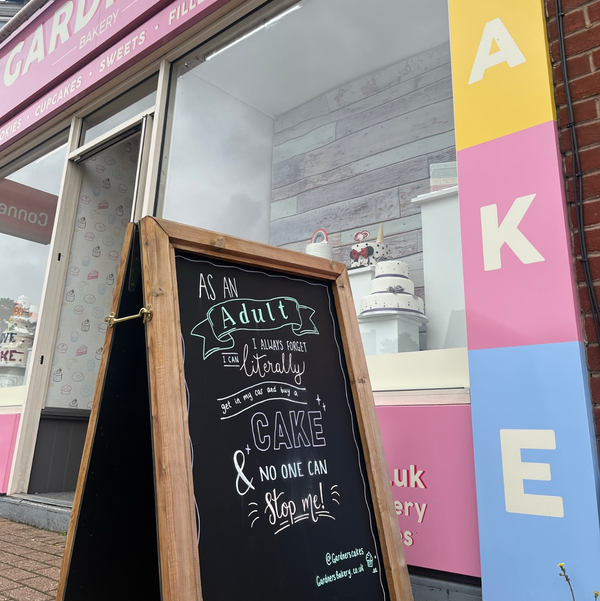 GARDN
BAKERY
OKIES · CUPCAKES · SWEETS · FILLE
Conne
A
K
E
AS AN
Adult
I ALWAYS FORGET
I CAN literally
get in my car and buy a
CAKE
& NO ONE CAN
Stop me!
@Gardnerscakes
GardnersBakery.co.uk
.uk
ery
es
WE
KE